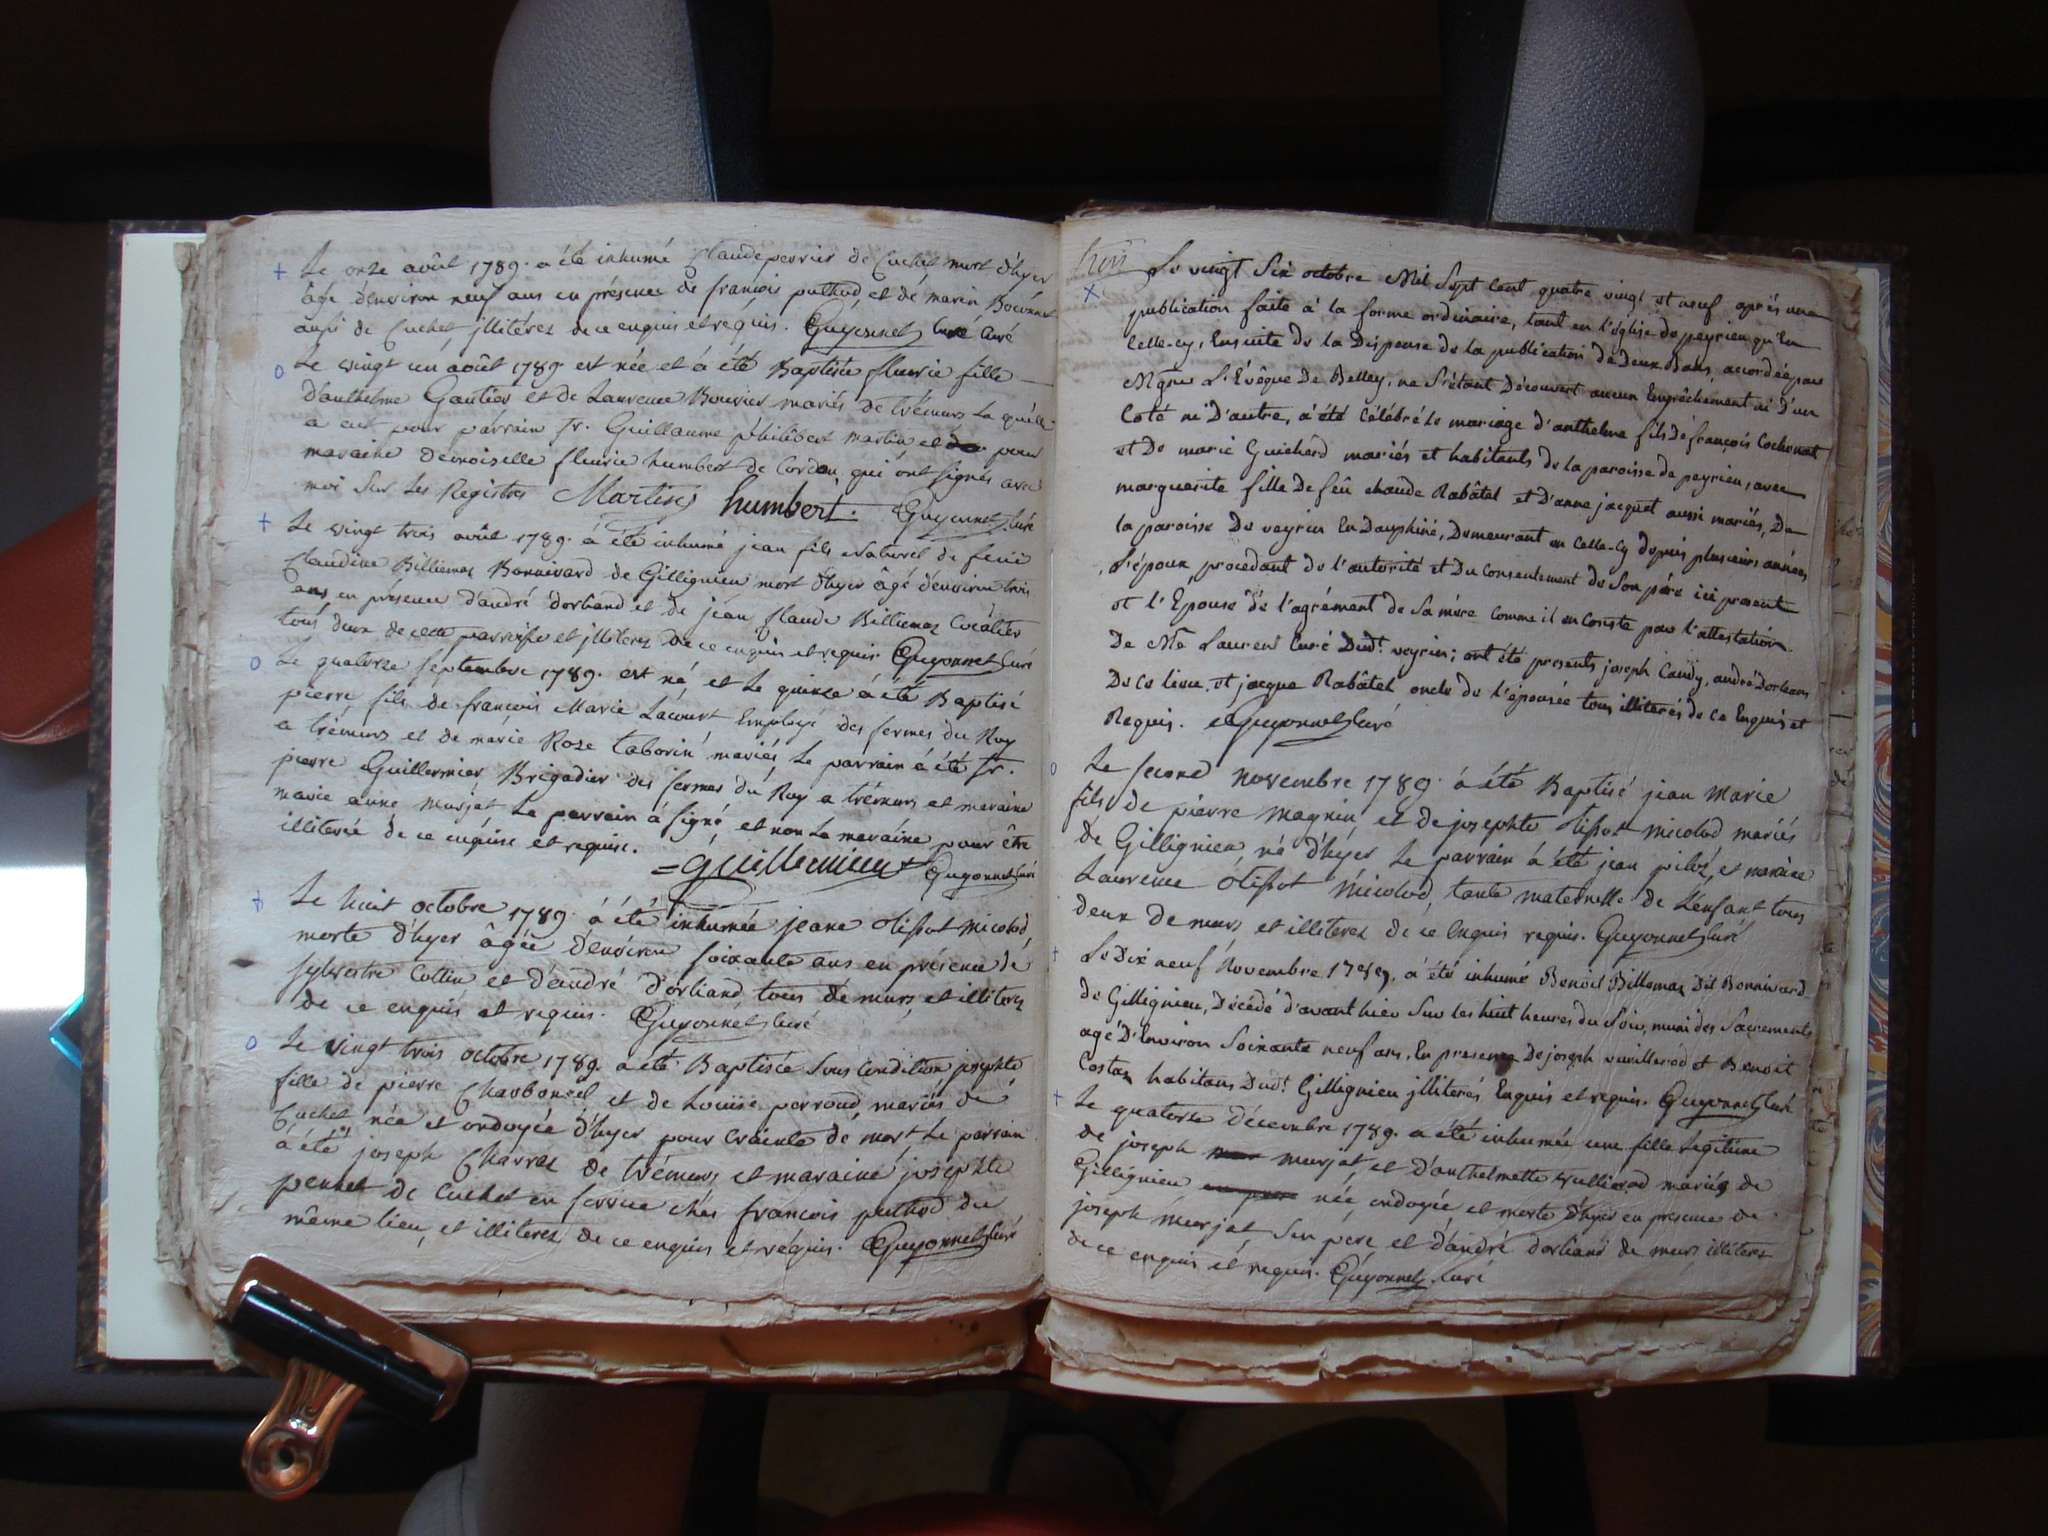 Le onze août 1789. a été inhumé Claude perrier de Cuchet mort d'hyer
âgé d'environ neuf ans en présence de françois puthod et de marin
aussi de Cuchet, jllitérez de ce enquis et requis. Guyonnet Curé
Le vingt un août 1789 est née et à été Baptisée fleurie fille
d'anthelme Gautier et de Laurence Bouvier mariés de trémurs La quelle
a eut pour parrain Sr. Guillaume philibert martin et pour
maraine demoiselle fleurie humbert de Cordon, qui ont signés avec
moi sur Les Registres Martin humbert. Guyonnet Curé
Le vingt trois août 1789. à été inhumé jean fils Naturel de feue
Claudine Billiemaz Bonnivard de Gillignieu mort d'hyer âgé d'environ trois
ans en présence d'andré d'orliand et de jean Claude Billiemaz
tous deux de cette parroisse et jlliterez de ce enquis et requis Guyonnet Curé
Le quatorze septembre 1789. est né, et Le quinze à été Baptisé
pierre, fils de françois Marie Lacourt Employé des fermes du Roy
a trémurs et de marie Roze taborin mariés, Le parrain à été Sr.
pierre Guillermier Brigadier des fermes du Roy a trémurs et maraine
marie anne murjat Le parrain à signé, et non La maraine pour être
illiterée de ce enquise et requise. Guillermier Guyonnet Curé
Le huit octobre 1789. à été inhumée jeane olissot micolod
morte d'hyer âgée d'environ soixante ans en présence de
sylvestre Cottin et d'andré d'orliand tous de murs, et illiterez
de ce enquis et requis. Guyonnet Curé
Le vingt trois octobre 1789. a été Baptisée Sous Condition josephte
fille de pierre Charbonnel et de Louise perroud, mariés de
Cuchet, née et ondoyée d'hyer pour Crainte de mort Le parrain
à été joseph Charvez de trémurs et maraine josephte
pernet de Cuchet en service chés françois puthod du
même lieu, et illiterez de ce enquis et requis. Guyonnet Curé
trois
Le vingt Six octobre Mil Sept Cent quatre vingt et neuf après une
publication faite à la forme ordinaire, tant en l'église de peyrieu qu'En
Celle-cy, Ensuite de la Dispense de la publication de Deux Bans, accordée par
Mgneur L'Evêque De Belley, ne S'étant Découvert aucun Empêchement ni D'un
Coté ni D'autre, a été Célébré le mariage d'anthelme fils De françois Cochonat
et De marie Guichard mariés et habitants de la paroisse de peyrieu, avec
marguerite fille De feû claude Rabâtel et D'anne jacquet aussi mariés, De
la paroisse De veyrin En Dauphiné, Demeurant en Celle-Cy depuis plusieurs années
L'époux procedant de l'autorité et Du Consentement de Son père ici présent
et l'Epouse de l'agrément de Sa mère Comme il en Conste par l'attestation
De Mre Laurent Curé Dud.t veyrin; ont été presents joseph Candy, andré Dorliand
De Ce lieu, et jacque Rabâtel oncle de l'épousée tous illiterés de Ce Enquis et
Requis. Guyonnet Curé
Le second novembre 1789. à été Baptisé jean Marie
fils de pierre Magnin, et de josephte olissot micolod mariés
de Gillignieu né d'hyer Le parrain à été jean piloz, et maraine
Laurence olissot Micolod, tante maternelle de L'enfant tous
deux de murs et illiterez de ce Enquis requis. Guyonnet Curé
Le Dix neuf Novembre 1789. a été inhumé Benoit Billemaz Dit Bonnivard
de Gillignieu, Décédé d'avant hier Sur les huit heures du Soir, muni des Sacrements
agé D'Environ Soixante neuf ans, En presence De joseph vuillerod et Benoit
Costaz habitans Dud.t Gillignieu jlliterés Enquis et requis. Guyonnet Curé
Le quatorze décembre 1789. a été inhumée une fille Légitime
de joseph murjat, et d'anthelmette vullierod mariés de
Gillignieu née, ondoyée et morte d'hyer en presence de
joseph murjat, son père et d'andré dorliand de murs illiterez
de ce enquis et requis. Guyonnet Curé